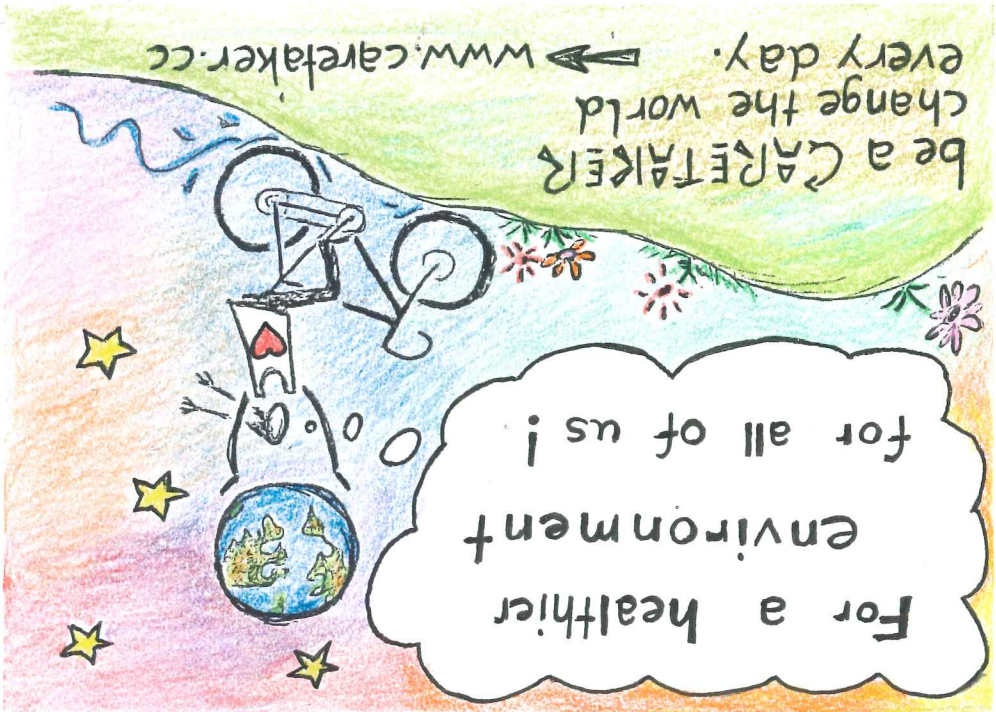 For a healthier
environment
for all of us!
be a CARETAKER
change the world
every day. www.caretaker.cc